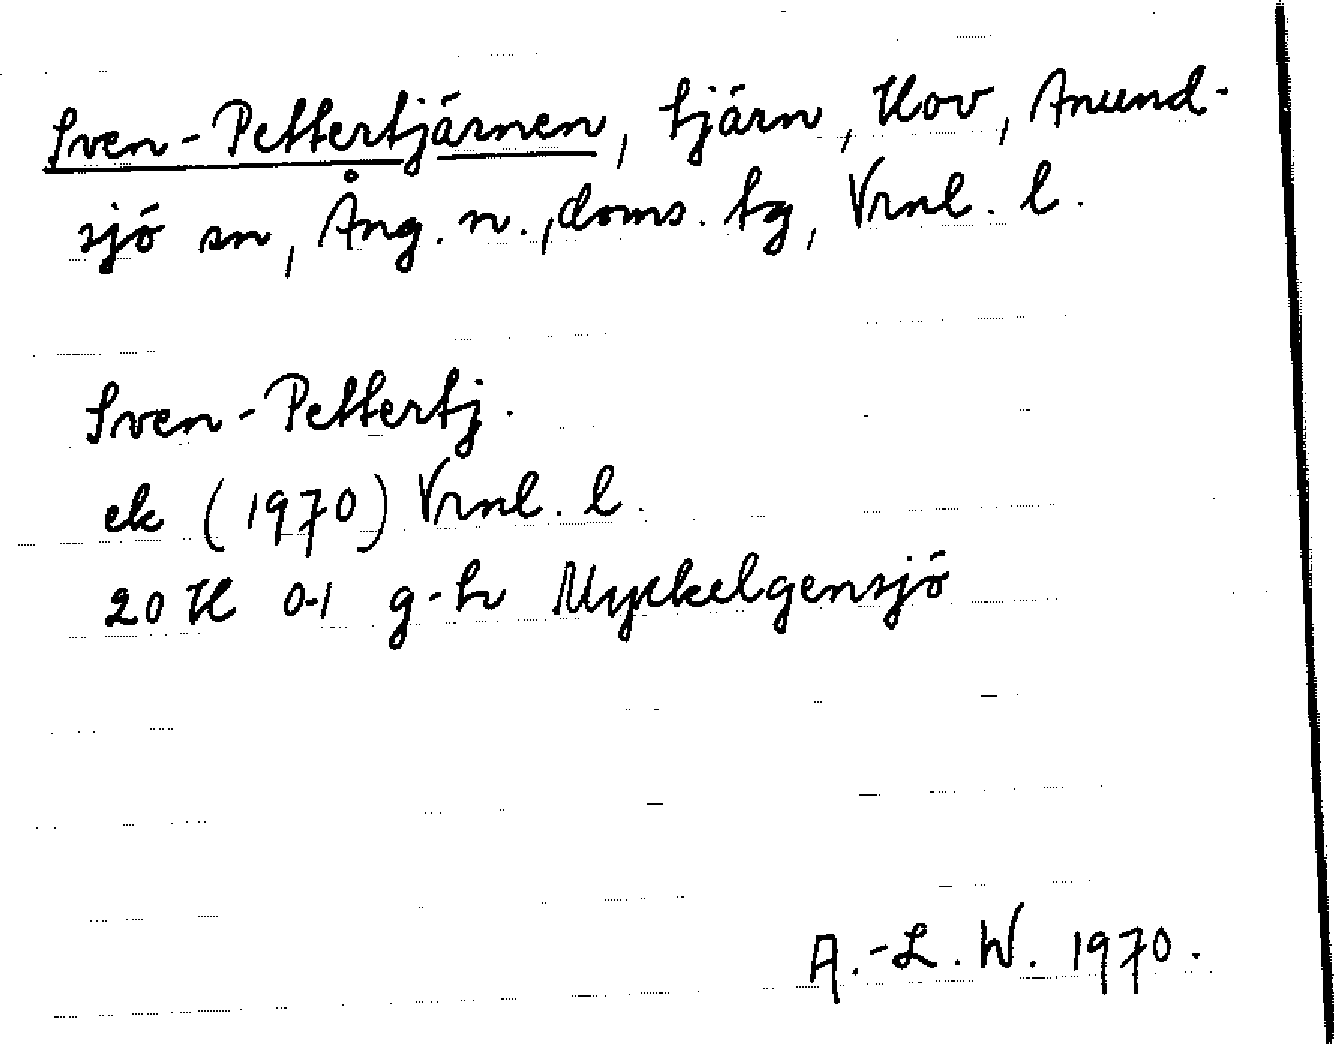 Sven-Pettertjärnen, tjärn, Hov, Anund-
sjö sn, Ång. n., doms. tg, Vrnl. l.
Sven-Pettertj.
ek (1970) Vrnl. l.
20 H 0-1 g-h Myckelgensjö
A.-L. W. 1970.